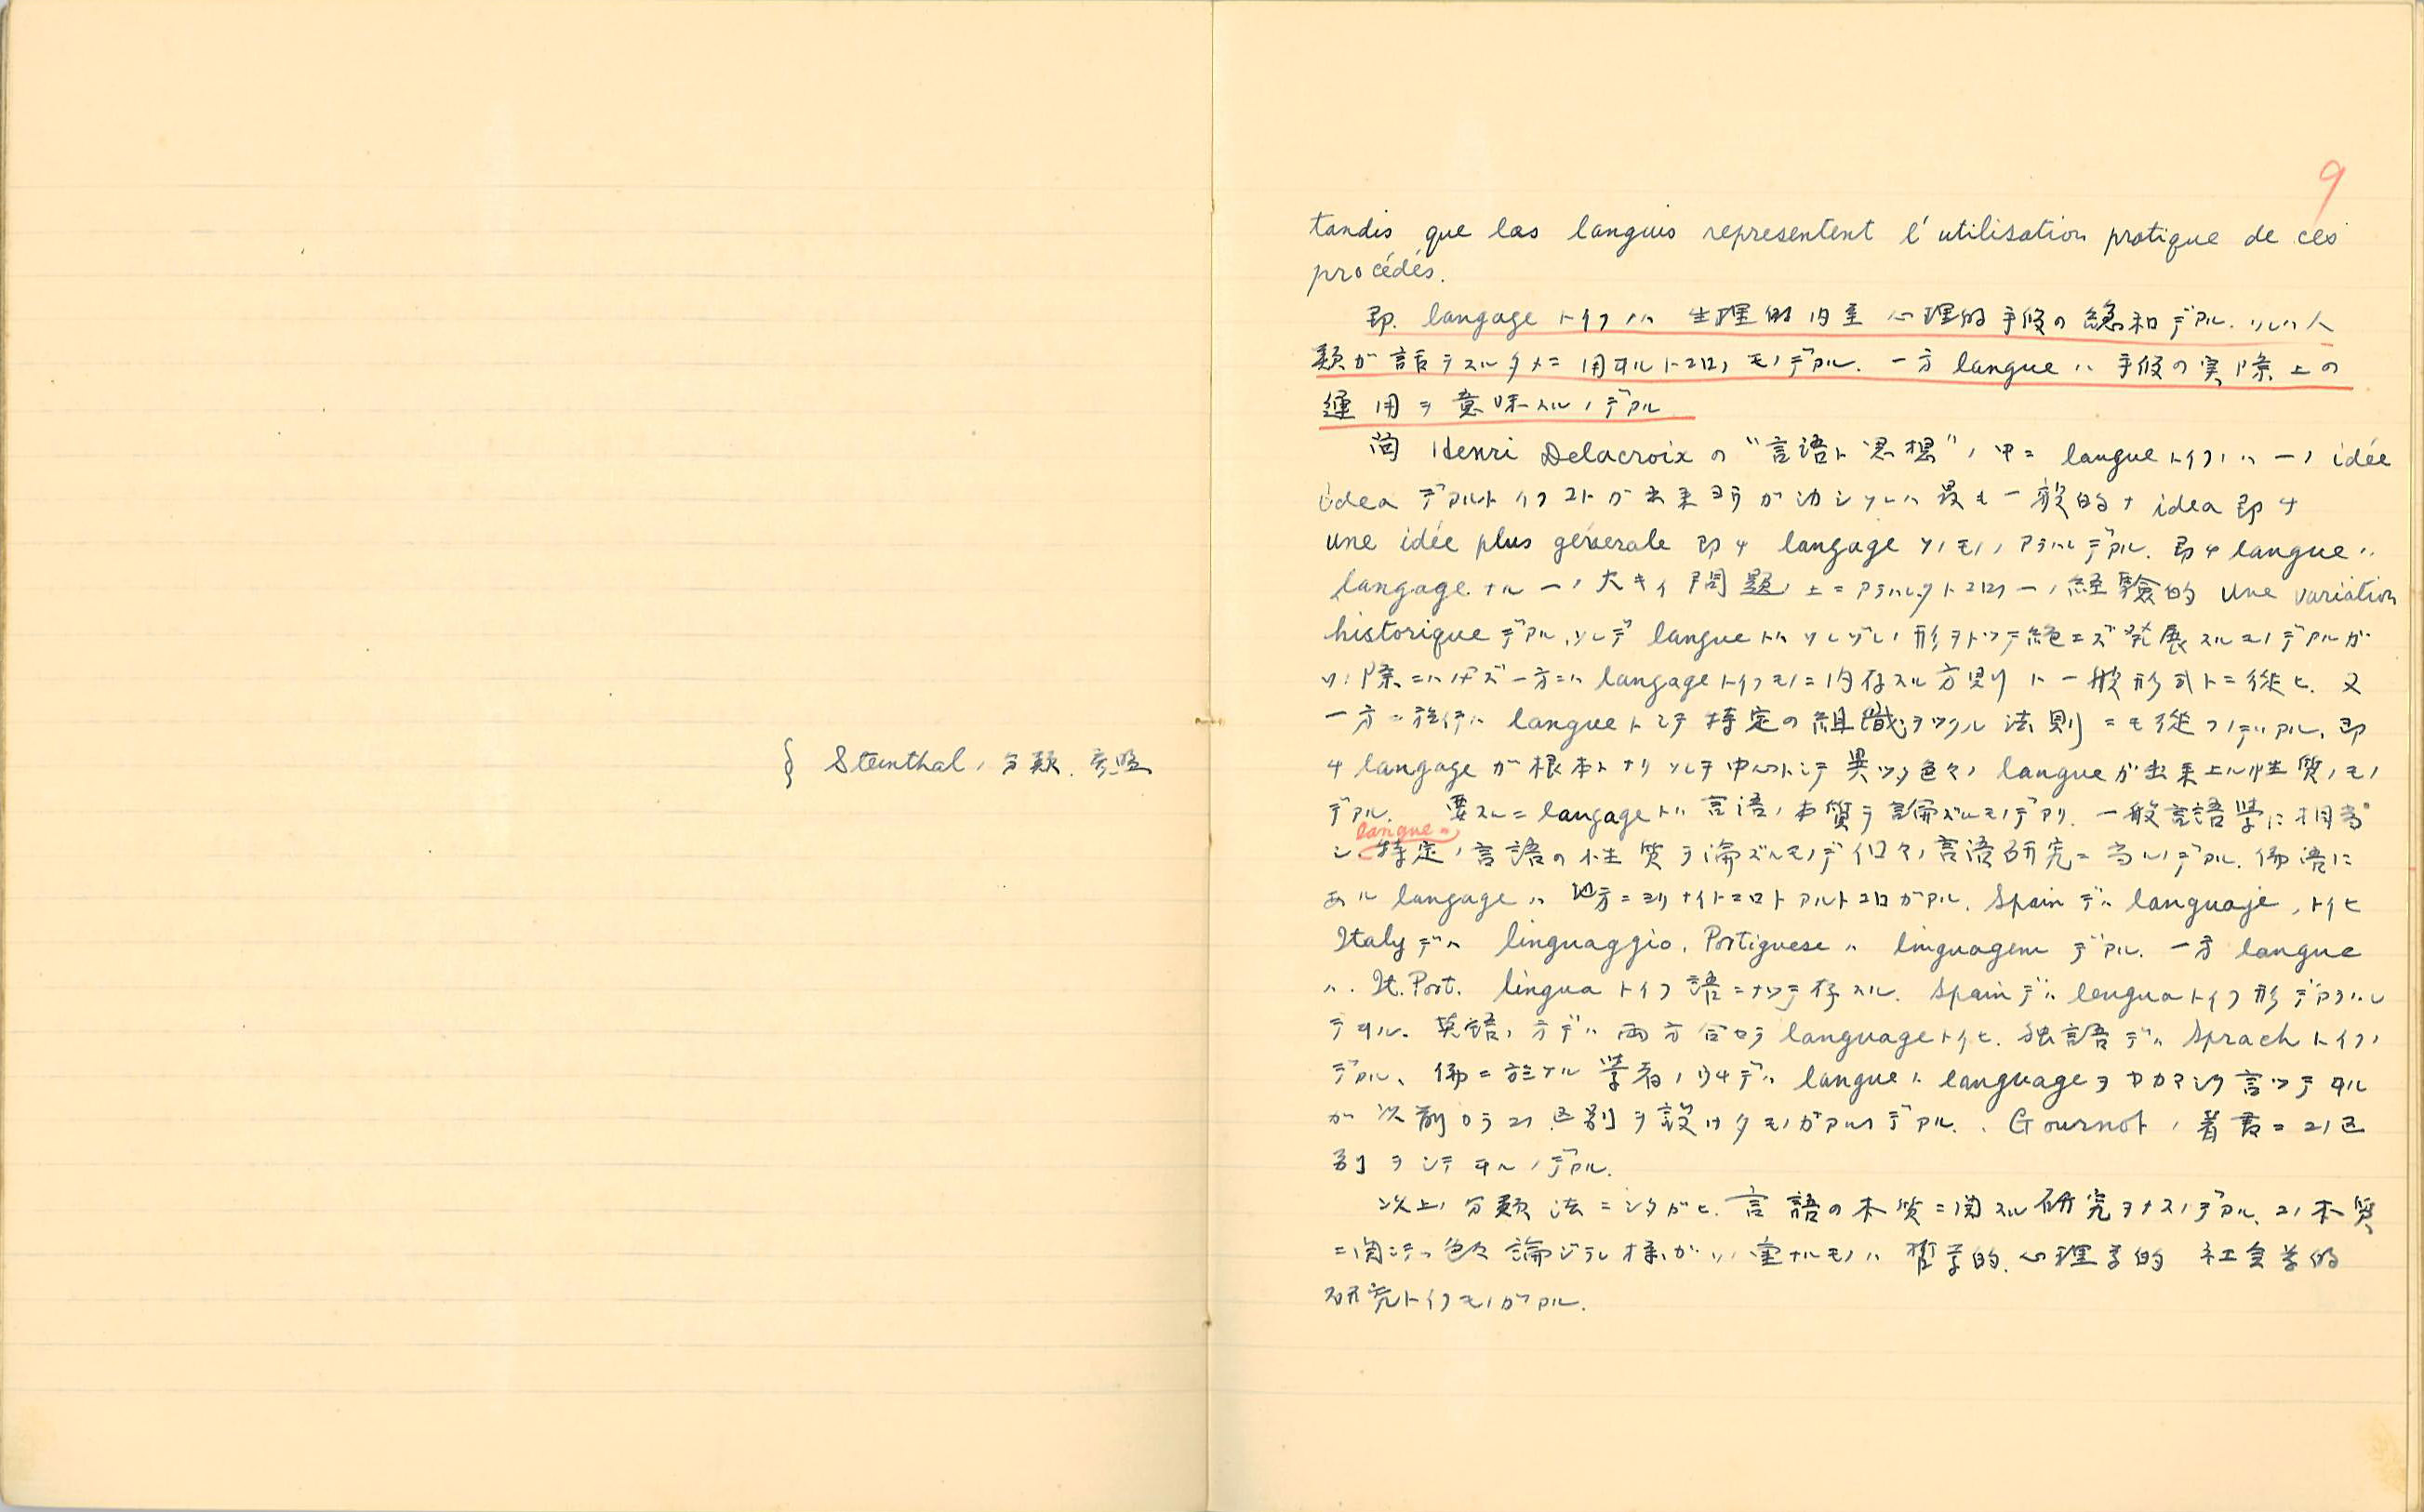 § Steinthal ノ 分類. 参照
9
tandis que las langues representent l'utilisation pratique de ces
procédés.
即. langage トイフノハ 生理的 内至 心理的手段の総和デアル. ソレハ人
類が話ヲスルタメニ 用ヰルトコロノ モノデアル. 一方 langue ハ 手段の実際上の
運用ヲ意味スルノデアル
尚 Henri Delacroix の "言語ト思想" ノ中ニ langue トイフノハ 一ノ idée
idea デアルトイフコトガ出来ヨウが 併シソレハ最モ一般的ナ idea 即チ
une idée plus génerale 即チ langage ソノモノノアラハレデアル. 即チ langue ハ
langage ナル一ノ大キイ問題ノ上ニアラハレタトコロノ一ノ経験的 une variation
historique デアル, ソレデ langue トハソレゾレノ形ヲトツテ絶エズ発展スルモノデアルガ
ソノ際ニハ必ズ一方ニハ langage トイフモノニ内存スル方則ト一般形式トニ従ヒ. 又
一方ニ於テハ langue トシテ特定の組織ヲツクル法則ニモ従フノデアル. 即
チ langage が根本トナリソレヲ中心トシテ異ツタ色々ノ langue が出来上ル性質ノモノ
デアル. 要スルニ langage トハ言語ノ本質ヲ論ズルモノデアリ. 一般言語学に相当
langue ハ
シ. 特定ノ言語の性質ヲ論ズルモノデ個々ノ言語研究ニ当ルノデアル. 佛語に
ある langage ハ 地方ニヨリナイトコロトアルトコロガアル. Spain デハ languaje, トイヒ
Italy デハ linguaggio. Portiguese ハ linguagem デアル. 一方 langue
ハ. It. Port. lingua トイフ語ニナツテ存スル. Spain デハ lengua トイフ形デアラハレ
テヰル. 英語ノ方デハ両方合セテ language トイヒ. 独語デハ Sprach トイフノ
デアル、佛ニ於ケル学者ノウチデハ langue ト language ヲヤカマシク言ツテヰル
が 以前カラコノ区別ヲ設ケタモノガアルノデアル. Gournot ノ著書ニコノ区
別ヲシテヰルノデアル.
以上ノ分類法ニシタガヒ. 言語の本質ニ関スル研究ヲナスノデアル. コノ本質
ニ関シテハ色々論ジラレ様ガソノ重ナルモノハ 哲学的. 心理学的 社会学的
研究トイフモノガアル.